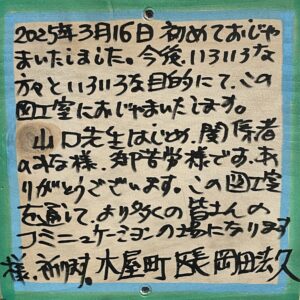 2025年3月16日 初めておじゃ
まいたしました。今後、いろいろな
方々といろいろな目的にて、この
図工室におじゃまいたします。
山口先生はじめ、関係者
のみな様、ご苦労様です。あ
りがとうございます。この図工室
を通じて、より多くの皆さんの
コミニュケーションの場になります
様、祈ります。木屋町 区長 岡田宏久